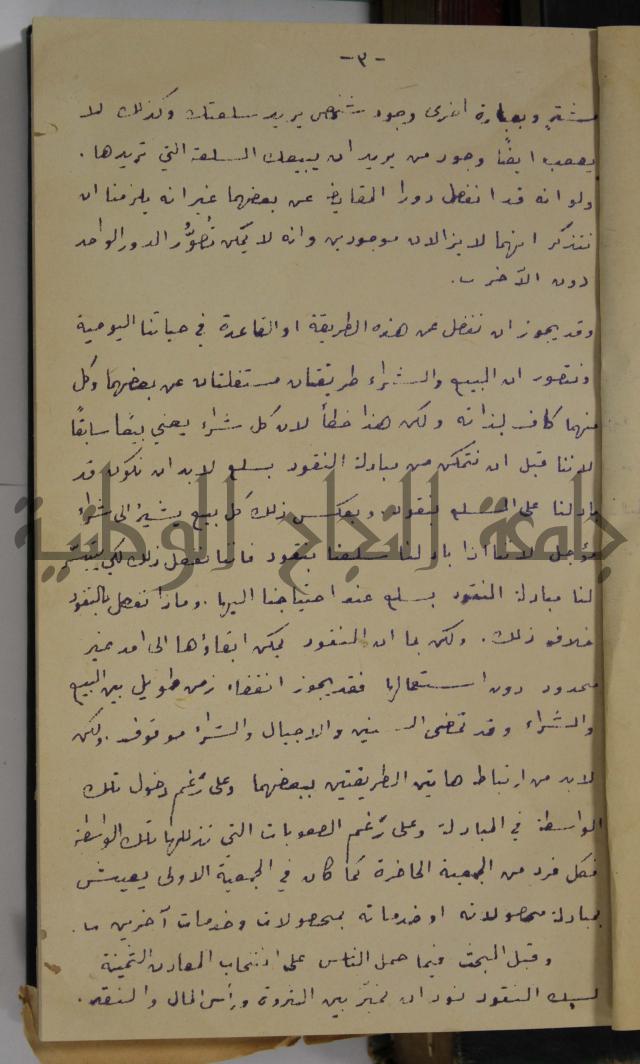 -٣-
مشترٍ وبعبارة اخرى وجود شخص يريد سلعتك وكذلك لا
يصعب ايضاً وجود من يريد ان يبيعك السلعة التي تريدها .
ولو انه قد انفصل دورا المقايض عن بعضهما غير انه يلزمنا ان
نتذكر انهما لا يزالان موجودين وانه لا يمكن تصوُّر الدور الواحد
دون الآخر .
وقد يجوز ان نغفل عن هذه الطريقة او القاعدة في حياتنا اليومية
ونتصور ان البيع والشراء طريقتان مستقلتان عن بعضهما وكل
منهما كاف لذاته ولكن هذا خطأ لان كل شراء يعني بيعاً سابقاً
لاننا قبل ان نتمكن من مبادلة النقود بسلع لابد ان نكون قد
بادلنا على السلع بنقود وبعكس ذلك كل بيع يشير الى شراء
مؤجل لاننا اذا بادلنا سلعنا بنقود فانما نفعل ذلك لكي
لنا مبادلة النقود بسلع عند احتياجنا اليها . وماذا نفعل بالنقود
خلاف ذلك . ولكن بما ان النقود يمكن ابقاؤها الى امد غير
محدود دون استعمالها فقد يجوز انقضاء زمن طويل بين البيع
والشراء وقد تمضى السنين والاجيال والشراء موقوف . ولكن
لابد من ارتباط هاتين الطريقتين ببعضهما وعلى رغم دخول تلك
الواسطة في المبادلة وعلى رغم الصعوبات التي تذللها تلك الواسطة
فكل فرد من الجمعية الحاضرة كما كان في الجمعية الاولى يعيش
بمبادلة محصولاته او خدماته بمحصولات وخدمات آخرين .
وقبل البحث فيما حمل الناس على انتخاب المعادن الثمينة
لسبك النقود نود ان نميز بين الثروة ورأس المال والنقد .
جامعة النجاح الوطنية